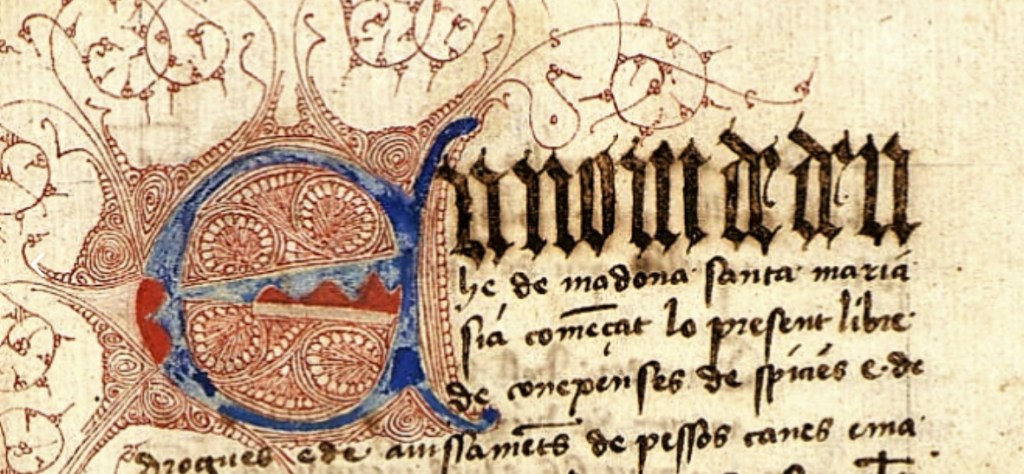 En nom de deu
he de madona santa maria
sia comēçat lo present libre
de conexenses de spicies e de
drogues e de auissamēts de pessos canes e ma